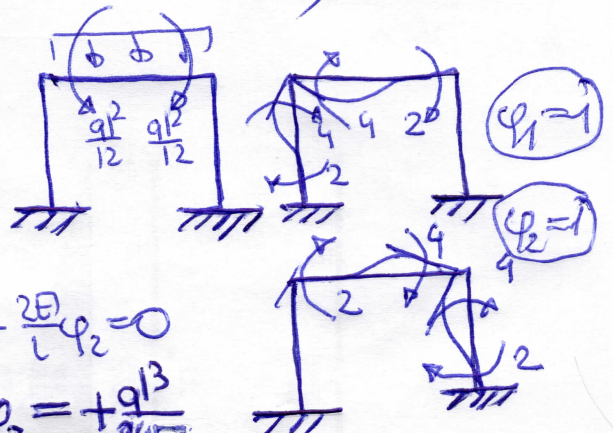 ql²/12 ql²/12
4 4 2
2
φ₁=1
φ₂=1
4
2
4
2
- 2EI/l φ₂=0
= +ql³